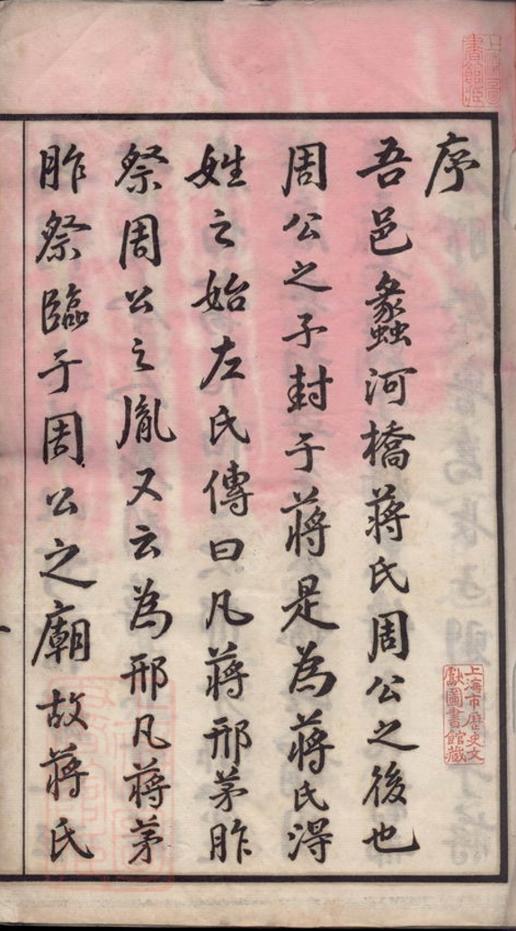 序
吾邑蠡河橋蔣氏周公之後也
周公之子封于蔣是為蔣氏淂
姓之始左氏傳曰凡蔣邢茅胙
祭周公之胤又云為邢凡蔣茅
胙祭臨于周公之廟故蔣氏
上海市歷史文
獻圖書館藏